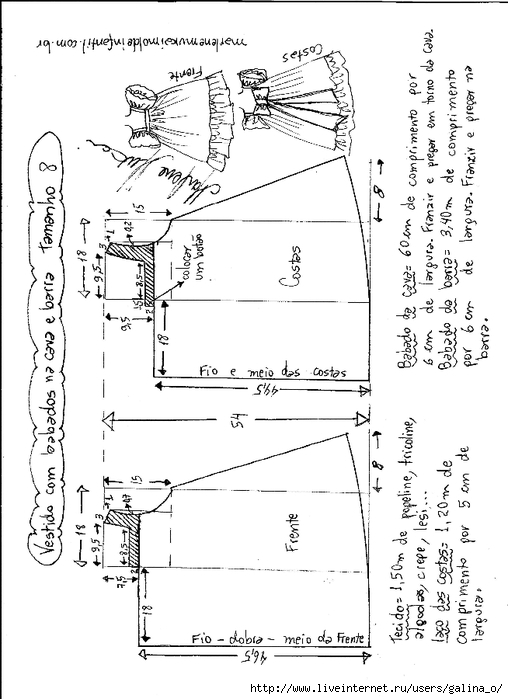 Vestido com babados na cava e barra tamanho 8
marlenemukaimoldeinfantil.com.br
Frente
Costas
Marlene
18
9,5
3
1
0,2
15
9,5
8,5
15
2
colocar
um botão
Costas
18
8
Fio e meio das costas
44,5
54
18
9,5
3
1
0,7
15
7,5
8,5
2
Frente
18
8
Fio - dobra - meio da Frente
46,5
Babado da cava = 60 cm de comprimento por
6 cm de largura. Franzir e pregar em torno da cava.
Babado da barra = 3,40 m de comprimento
por 6 cm de largura. Franzir e pregar na
barra.
Tecido = 1,50m de popeline, tricoline,
algodão, crepe, lesi...
laço das costas = 1,20m de
comprimento por 5 cm de
largura.
http://www.liveinternet.ru/users/galina_o/